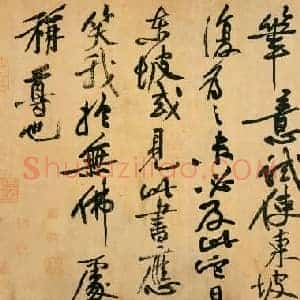 筆意試使東坡
復為之未必及此它日
東坡或見此書應
笑我於無佛處
稱尊也